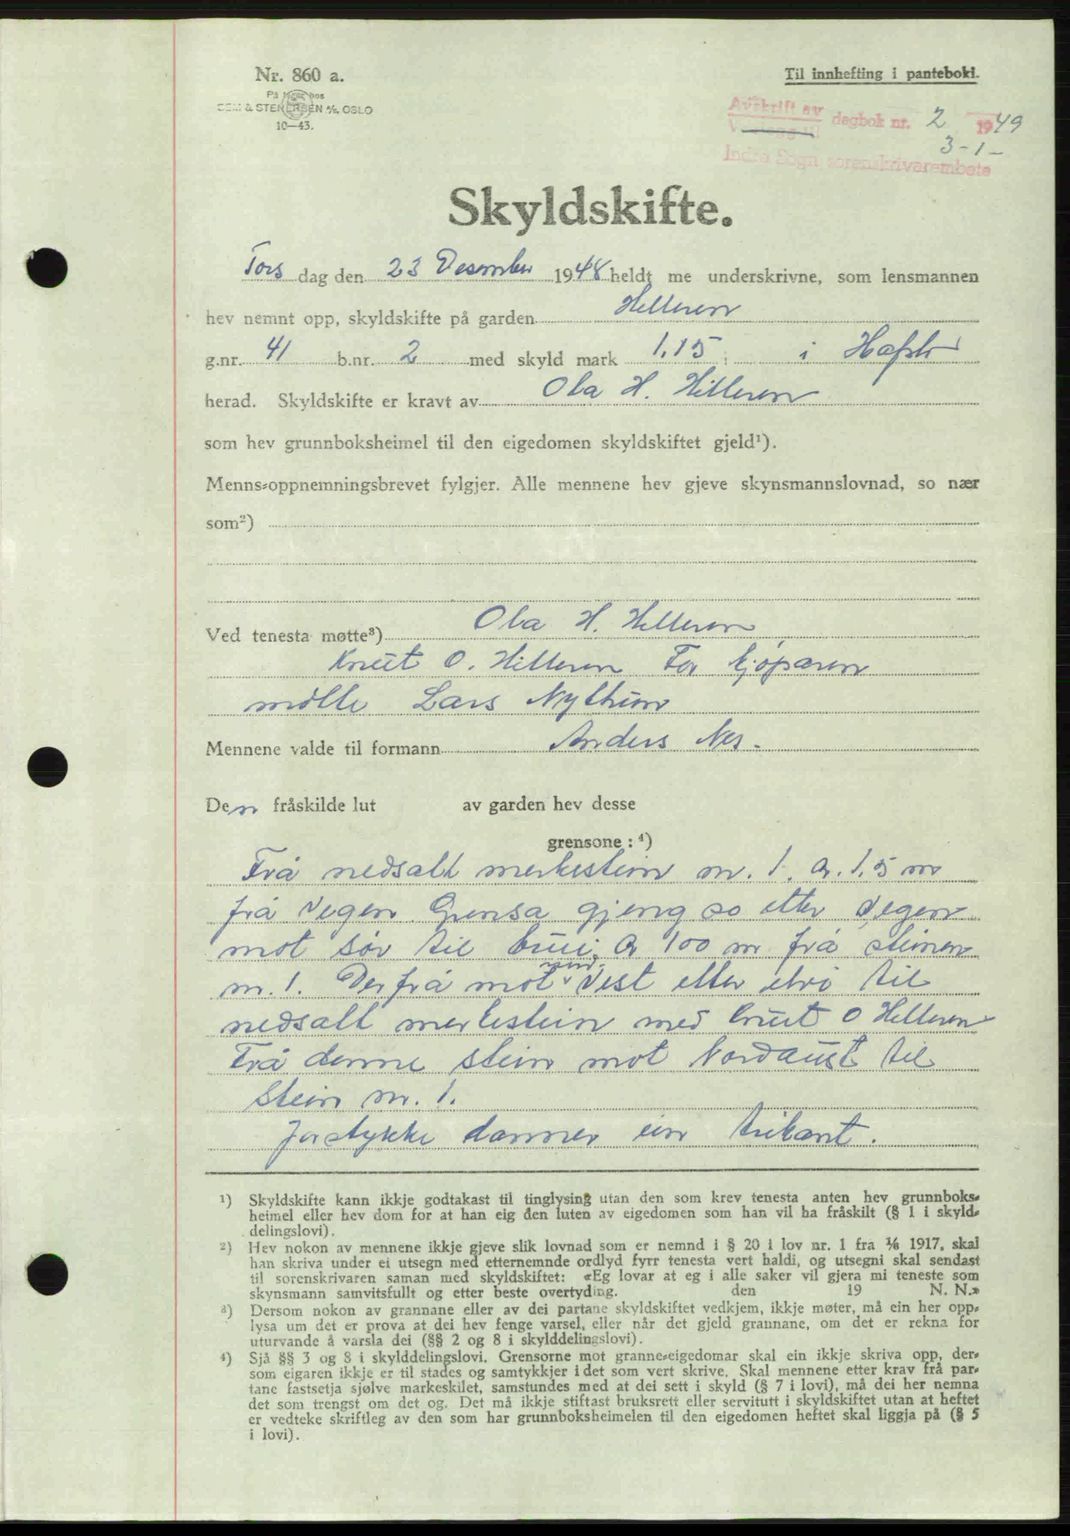 Nr. 860 a.
På lager hos
SEM & STENERSEN A/S, OSLO
10—43.
Til innhefting i panteboki.
Avskrift av
dagbok nr. 2 1949
3-1-
Indre Sogn sorenskrivarembete
Skyldskifte.
Torsdag den 23 Desember 1948 heldt me underskrivne, som lensmannen
hev nemnt opp, skyldskifte på garden Hilleren
g.nr. 41 b.nr. 2 med skyld mark 1,15 i Hafslo
herad. Skyldskifte er kravt av Ola H. Hilleren
som hev grunnboksheimel til den eigedomen skyldskiftet gjeld¹).
Menns-oppnemningsbrevet fylgjer. Alle mennene hev gjeve skynsmannslovnad, so nær
som²)
Ved tenesta møtte³) Ola H. Hilleren
Knut O. Hilleren For kjøparen
møtte Lars Nythun
Mennene valde til formann Anders Nes.
Den fråskilde lut av garden hev desse
grensone : ⁴)
Frå nedsatt merkestein nr. 1. ca. 1,5 m
frå vegen Grensa gjeng so etter vegen
mot sør til bru; ca 100 m frå steinen
nr. 1. Derfrå mot nord-vest etter elvi til
nedsatt merkestein med Knut O Hilleren
Frå denne stein mot Nordaust til
Stein nr. 1.
Jorstykke danner ein trikant.
¹) Skyldskifte kann ikkje godtakast til tinglysing utan den som krev tenesta anten hev grunnboks-
heimel eller hev dom for at han eig den luten av eigedomen som han vil ha fråskilt (§ 1 i skyld-
delingslovi).
²) Hev nokon av mennene ikkje gjeve slik lovnad som er nemnd i § 20 i lov nr. 1 fra ⅙ 1917, skal
han skriva under ei utsegn med etternemnde ordlyd fyrr tenesta vert haldi, og utsegni skal sendast
til sorenskrivaren saman med skyldskiftet: «Eg lovar at eg i alle saker vil gjera mi teneste som
skynsmann samvitsfullt og etter beste overtyding. den 19 N. N.»
³) Dersom nokon av grannane eller av dei partane skyldskiftet vedkjem, ikkje møter, må ein her opp-
lysa um det er prova at dei hev fenge varsel, eller når det gjeld grannane, om det er rekna for
uturvande å varsla dei (§§ 2 og 8 i skylddelingslovi).
⁴) Sjå §§ 3 og 8 i skylddelingslovi. Grensorne mot granne-eigedomar skal ein ikkje skriva opp, der-
som eigaren ikkje er til stades og samtykkjer i det som vert skrive. Skal mennene etter krav frå par-
tane fastsetja sjølve markeskilet, samstundes med at dei sett i skyld (§ 7 i lovi), må dei her nemna
det som trengst om det og. Det må ikkje stiftast bruksrett eller servitutt i skyldskiftet utan at heftet
er vedteke skriftleg av den som har grunnboksheimelen til den eigedomen heftet skal liggja på (§ 5
i lovi).